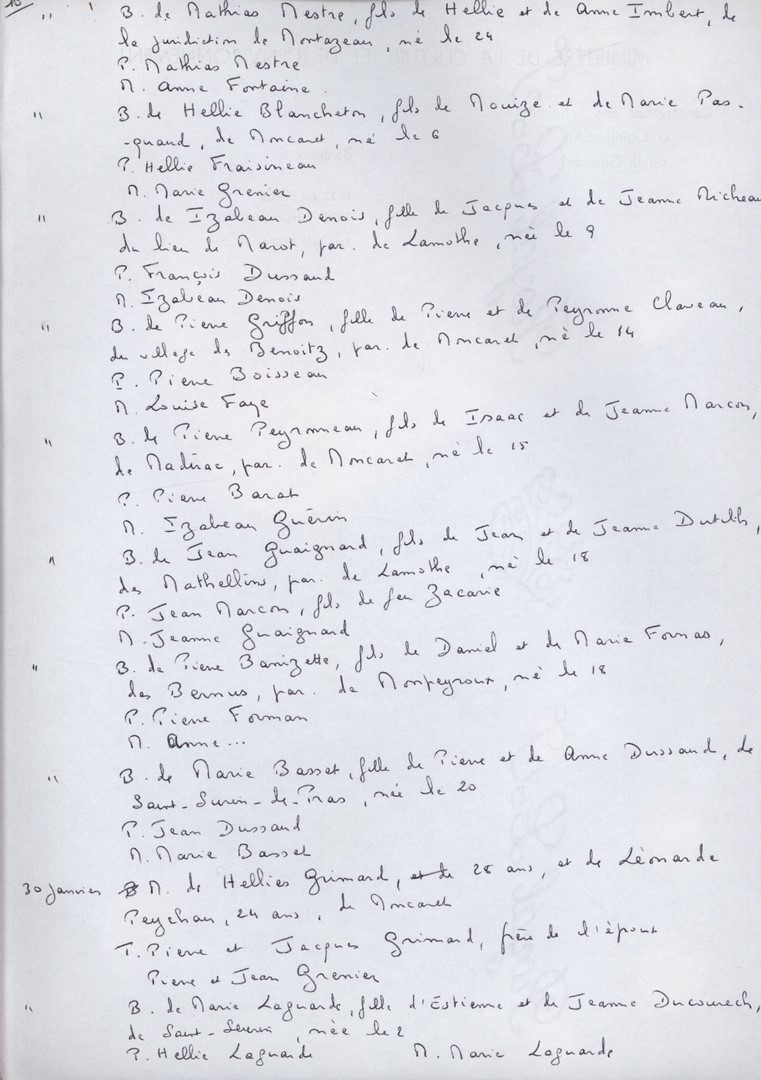 " B. de Mathias Mestre, fils de Hellie et de Anne Imbert, de
la juridiction de Montazeau, né le 24
P. Mathias Mestre
M. Anne Fontaine.
" B. de Hellie Blancheton, fils de Mouize et de Marie Pas-
-quaud, de Moncaret, né le 6
P. Hellie Fraisineau
M. Marie Grenier
" B. de Izabeau Denois, fille de Jacques et de Jeanne Micheau
du lieu de Marot, par. de Lamothe, née le 9
P. François Dussaud
M. Izabeau Denois
" B. de Pierre Griffon, fille de Pierre et de Peyronne Claveau,
du village des Benoitz, par. de Moncaret, né le 14
P. Pierre Boisseau
M. Louise Faye
" B. de Pierre Peyronneau, fils de Isaac et de Jeanne Marcon,
de Madirac, par. de Moncaret, né le 15
P. Pierre Barat
M. Izabeau Guérin
" B. de Jean Guaignard, fils de Jean et de Jeanne Dutilh,
des Mathellins, par. de Lamothe, né le 18
P. Jean Marcon, fils de feu Zacarie
M. Jeanne Guaignard
" B. de Pierre Barrizette, fils de Daniel et de Marie Fornas,
des Bernus, par. de Monpeyroux, né le 18
P. Pierre Forman
M. Anne...
" B. de Marie Basset, fille de Pierre et de Anne Dussaud, de
Saint-Surin-de-Pras, née le 20
P. Jean Dussaud
M. Marie Basset
30 Janvier M. de Hellies Grimard, et de 28 ans, et de Léonarde
Peychau, 24 ans, de Moncaret
T. Pierre et Jacques Grimard, frère de l'époux
Pierre et Jean Grenier
" B. de Marie Laguarde, fille d'Estienne et de Jeanne Ducourech,
de Saint-Seurin, née le 2
P. Hellie Laguarde M. Marie Laguarde